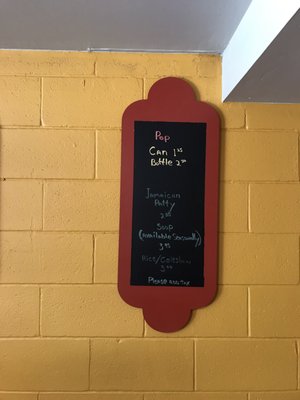 Pop
Can 1.25
Bottle 2.50
Jamaican
Patty
2.50
Soup
(Available Seasonally)
3.95
Rice/Coleslaw
3.95
Please Add Tax